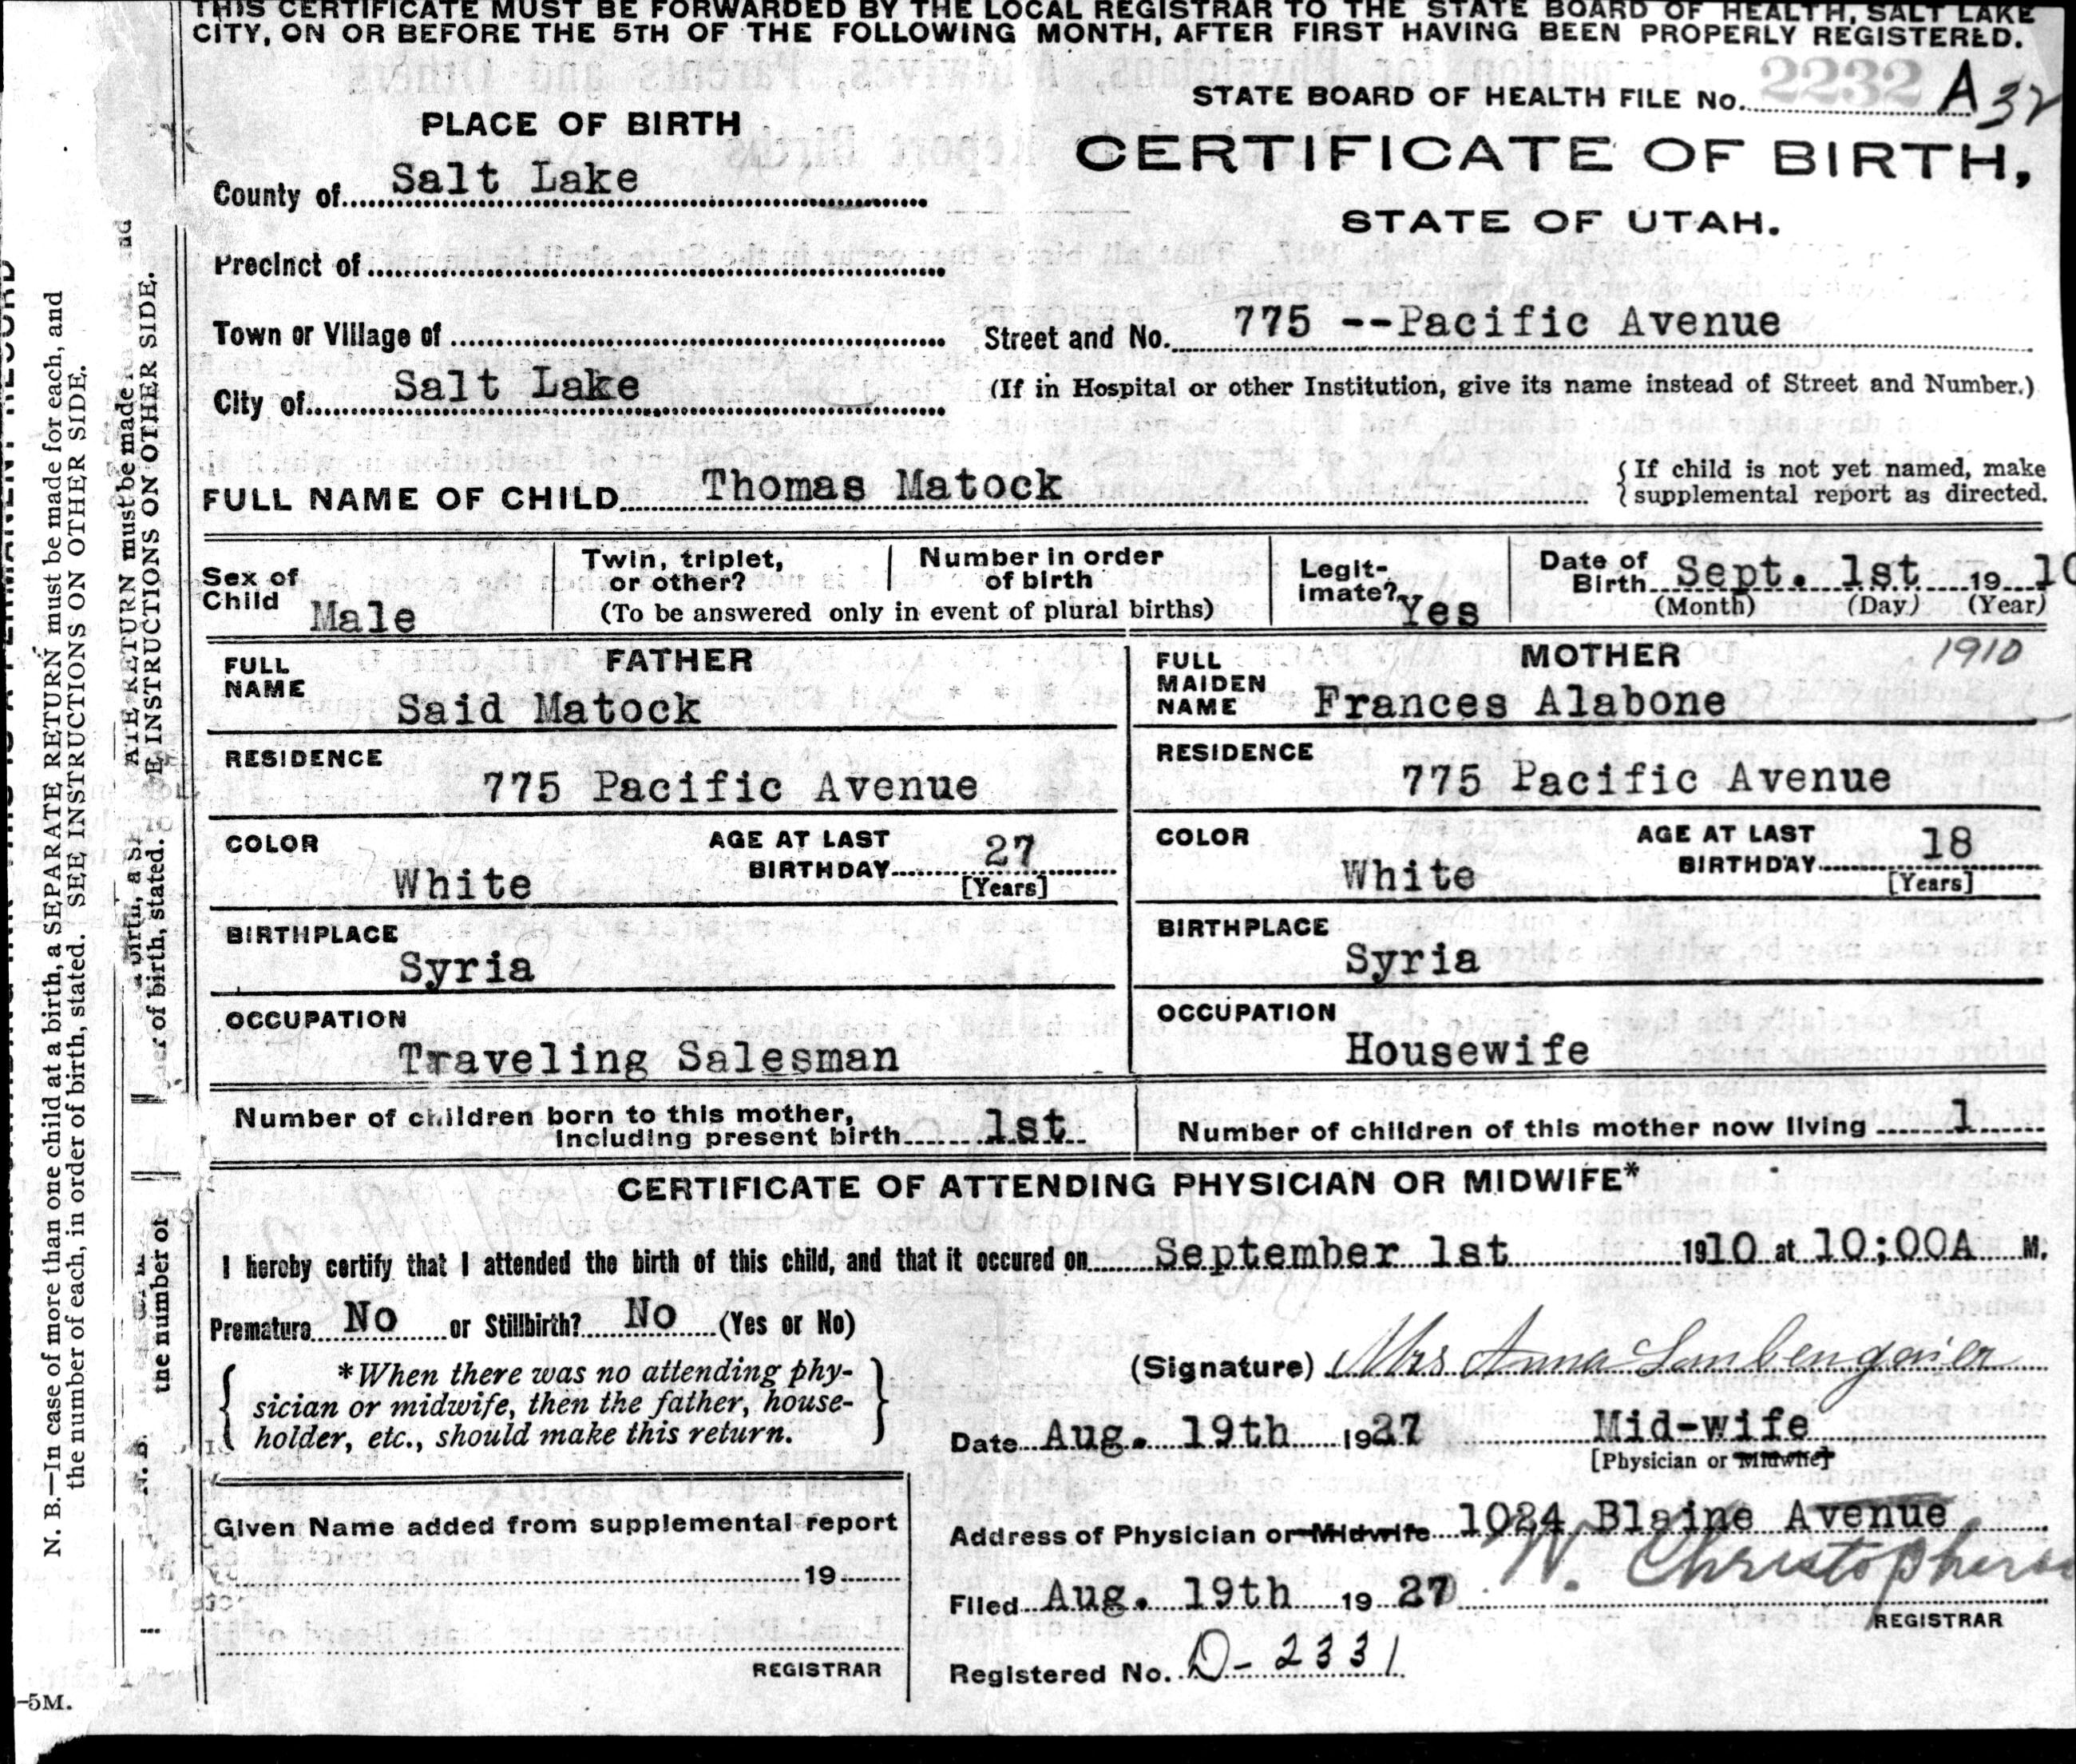 THIS CERTIFICATE MUST BE FORWARDED BY THE LOCAL REGISTRAR TO THE STATE BOARD OF HEALTH, SALT LAKE
CITY, ON OR BEFORE THE 5TH OF THE FOLLOWING MONTH, AFTER FIRST HAVING BEEN PROPERLY REGISTERED.
STATE BOARD OF HEALTH FILE No. 2232 A 32
PLACE OF BIRTH
CERTIFICATE OF BIRTH,
STATE OF UTAH.
County of Salt Lake
Precinct of
Town or Village of
Street and No. 775 --Pacific Avenue
City of Salt Lake
(If in Hospital or other Institution, give its name instead of Street and Number.)
FULL NAME OF CHILD Thomas Matock
{If child is not yet named, make
supplemental report as directed.
Sex of
Child Male
Twin, triplet,
or other?
Number in order
of birth
(To be answered only in event of plural births)
Legit-
imate? Yes
Date of
Birth Sept. 1st 19 10
(Month) (Day) (Year)
FATHER
FULL
NAME
Said Matock
MOTHER 1910
FULL
MAIDEN
NAME Frances Alabone
RESIDENCE
775 Pacific Avenue
RESIDENCE
775 Pacific Avenue
COLOR
White
AGE AT LAST
BIRTHDAY 27
[Years]
COLOR
White
AGE AT LAST
BIRTHDAY 18
[Years]
BIRTHPLACE
Syria
BIRTHPLACE
Syria
OCCUPATION
Traveling Salesman
OCCUPATION
Housewife
Number of children born to this mother,
including present birth 1st
Number of children of this mother now living 1
CERTIFICATE OF ATTENDING PHYSICIAN OR MIDWIFE*
I hereby certify that I attended the birth of this child, and that it occured on September 1st 1910 at 10;00A M.
Premature No or Stillbirth? No (Yes or No)
{ *When there was no attending phy-
sician or midwife, then the father, house-
holder, etc., should make this return. }
(Signature) Mrs Anna
Date Aug. 19th 1927 Mid-wife
[Physician or Midwife]
Given Name added from supplemental report
19
REGISTRAR
Address of Physician or Midwife 1024 Blaine Avenue
Filed Aug. 19th 19 27 W. Christopherson
REGISTRAR
Registered No. D-2331
N. B.—In case of more than one child at a birth, a SEPARATE RETURN must be made for each, and
the number of each, in order of birth, stated. SEE INSTRUCTIONS ON OTHER SIDE.
RETURN must be made
of birth, stated. E INSTRUCTIONS ON OTHER SIDE.
the number of
N. B.
-5M.